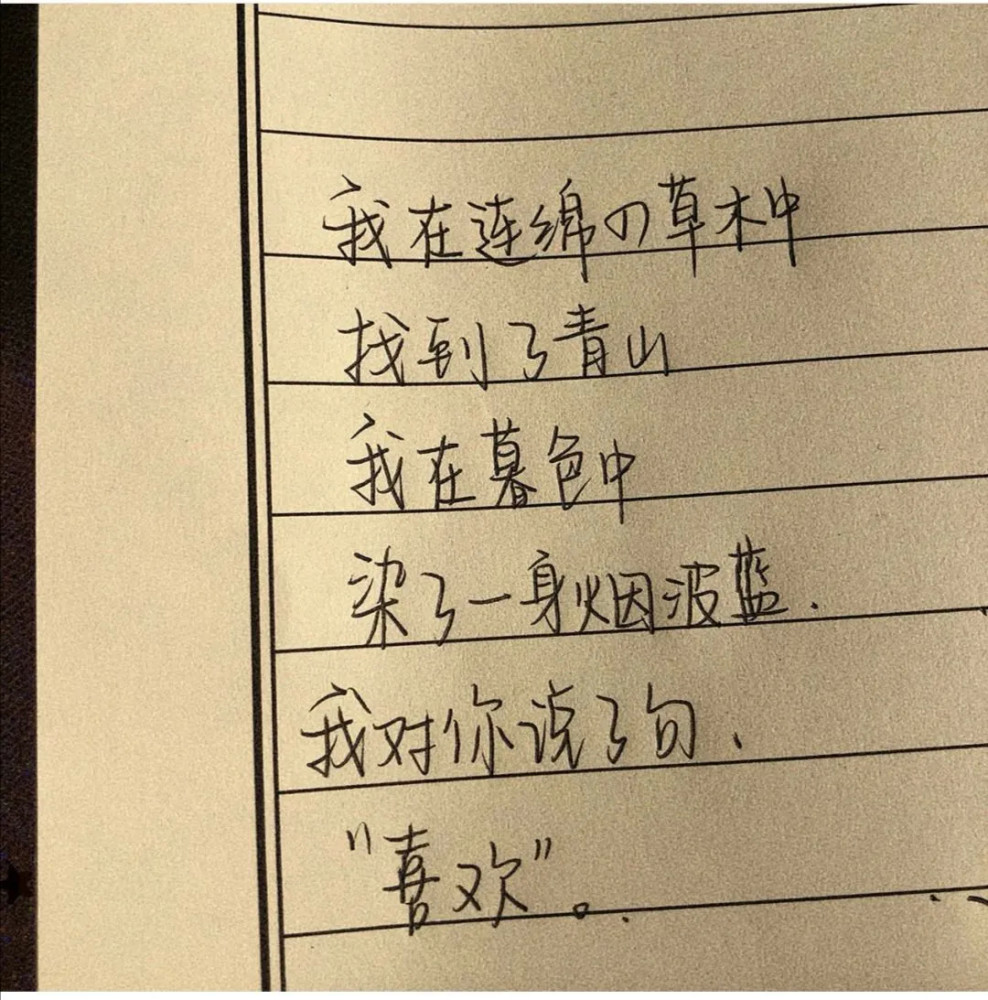 我在连绵の草木中
找到了青山
我在暮色中
染了一身烟波蓝.
我对你说了句.
"喜欢"。.